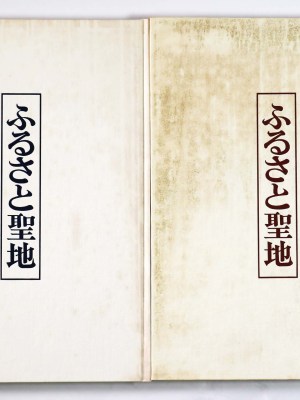 ふるさと聖地
ふるさと聖地